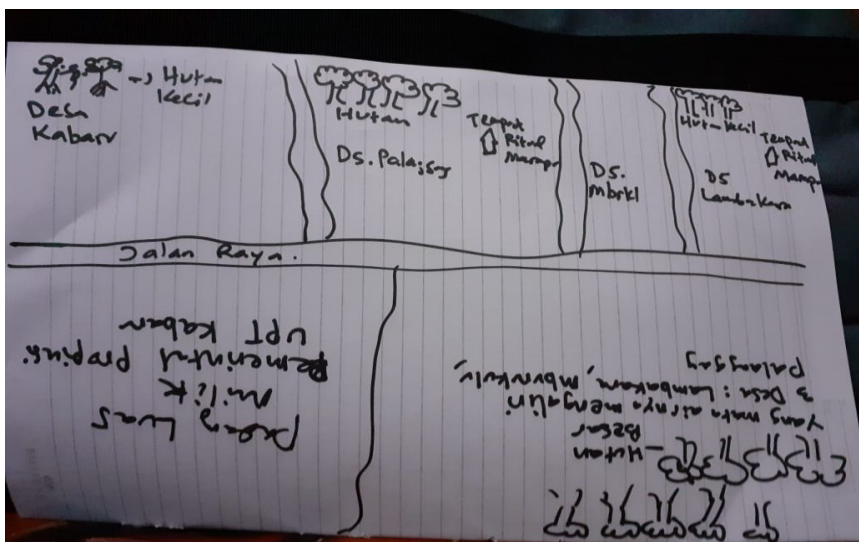 → Hutan
Kecil
Desa
Kabaru
Hutan
Ds. Palajggg
Tempat
Ritual
Marapu
Ds.
Mbrkl
Hutan Kecil
Ds
Lambakara
Tempat
Ritual
Marapu
Jalan Raya.
Padang Luas
milik
Pemerintah propinsi
UPT Kabaru
Hutan
Besar
Yang mata airnya mengaliri
3 Desa : Lambakara, Mbrukulu,
Palanggay